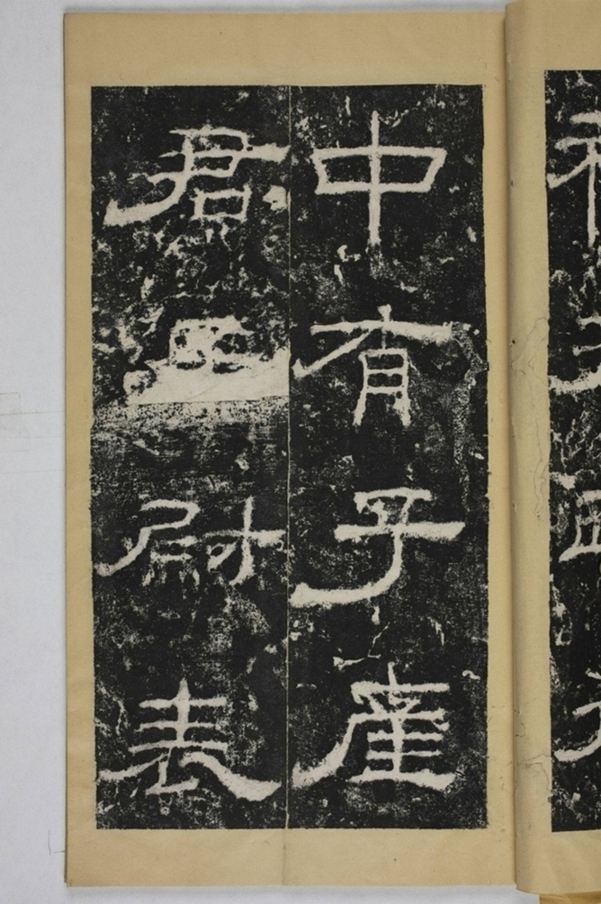 中有子產
君尉表